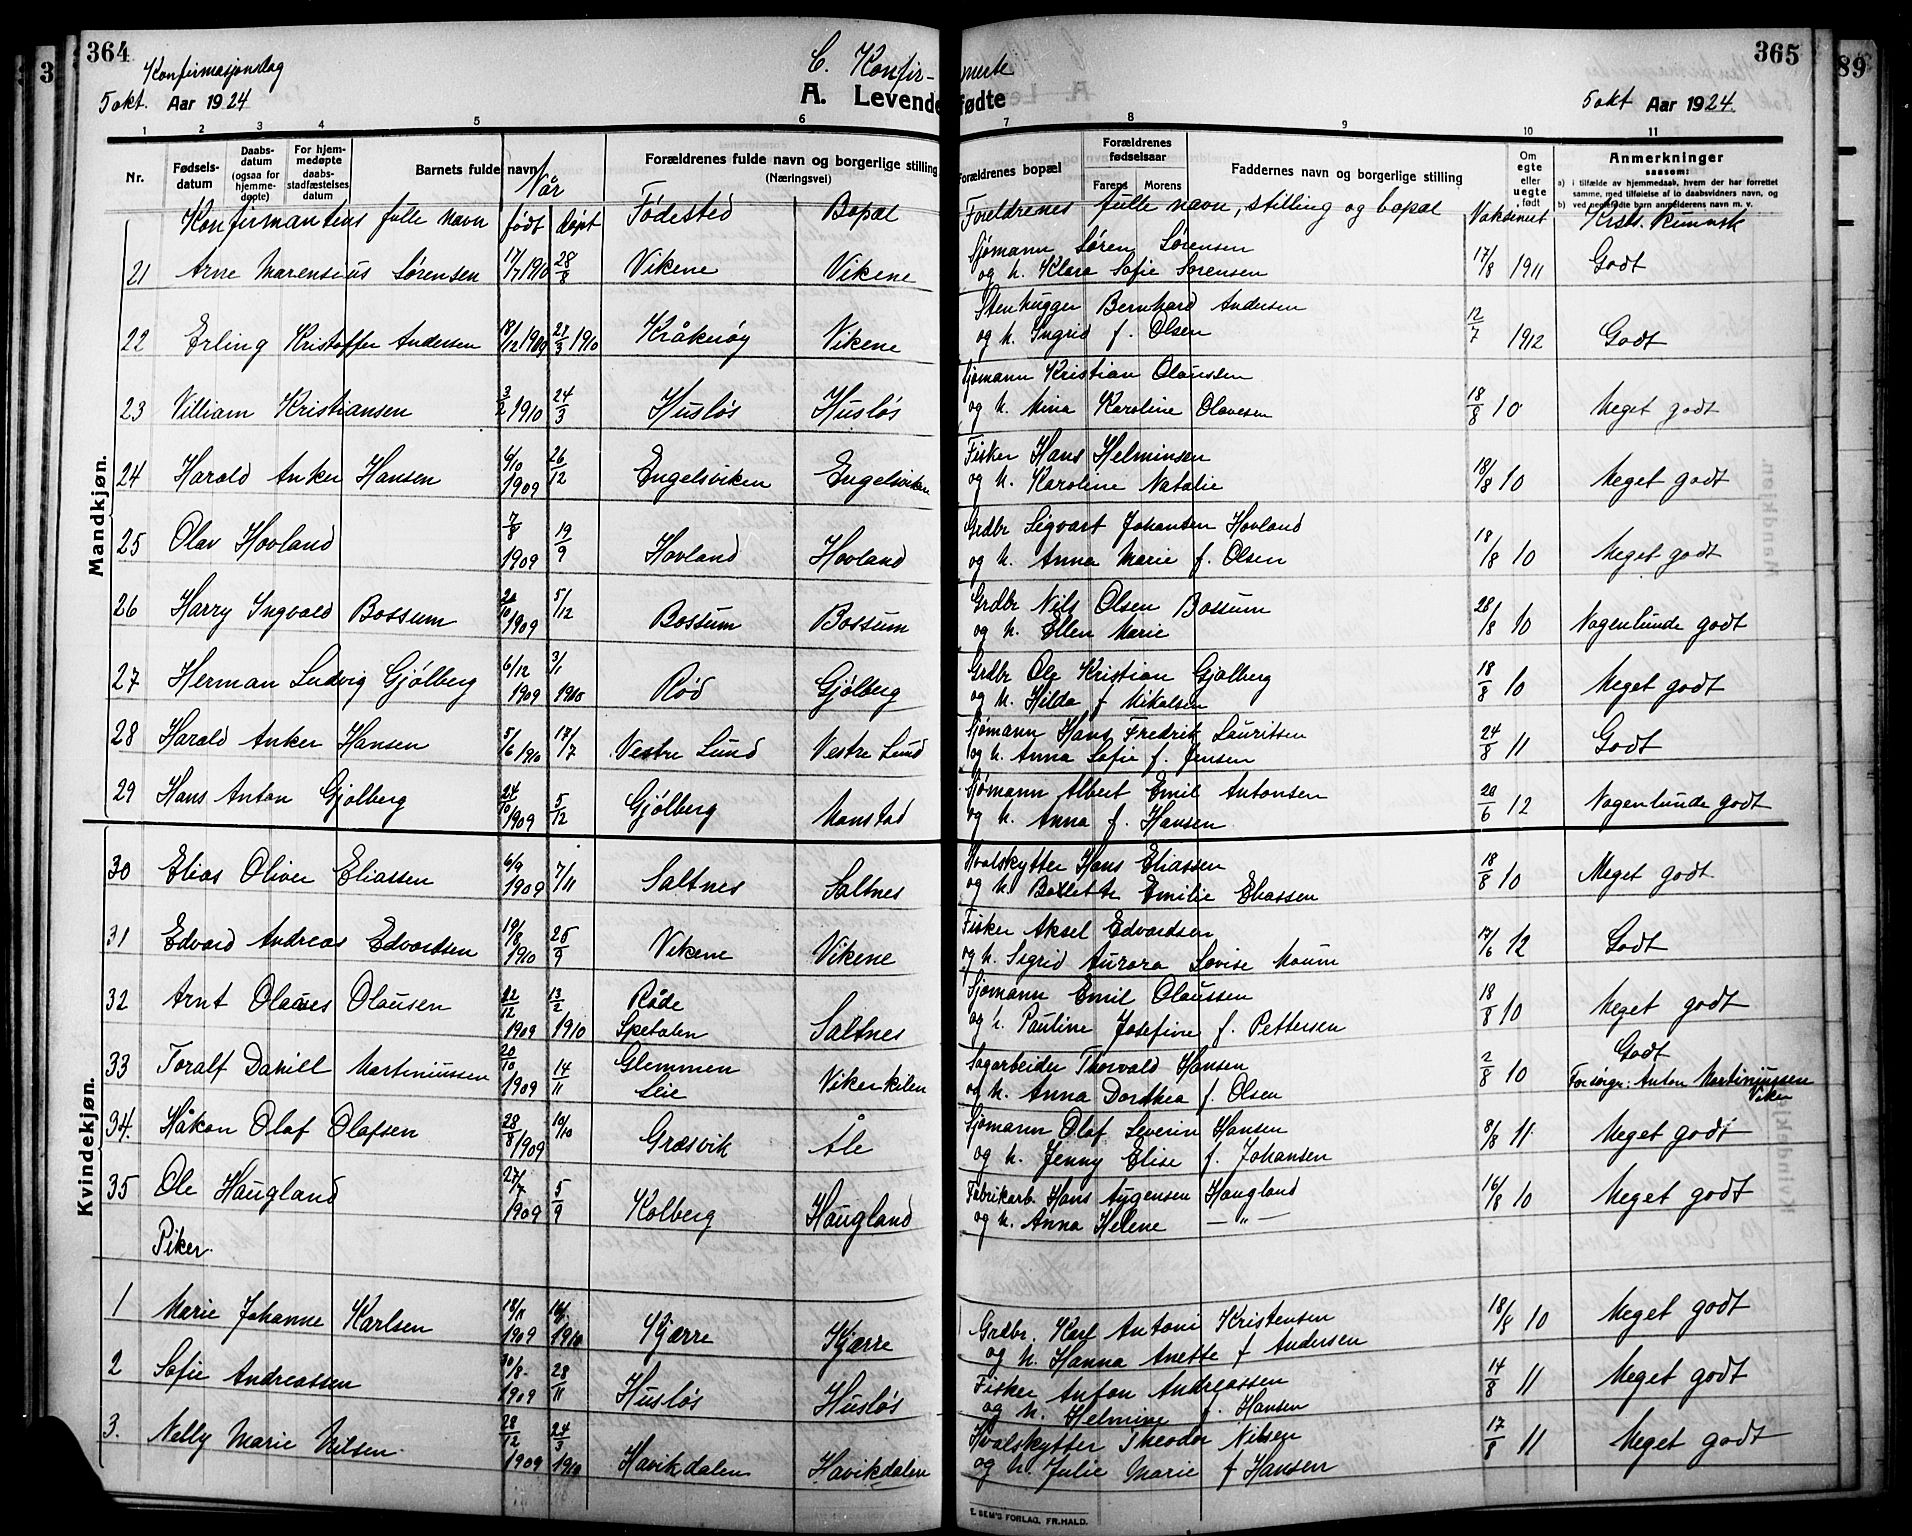 364
Konfirmasjonsdag
5 okt. Aar 1924
C. Konfir-merte
A. Levendefødte
365
5 okt Aar 1924.
89
3
1 2 3 4 5 6 7 8 9 10 11
Nr.
Fødsels-datum
Daabs-datum (ogsaa for hjemme-døpte)
For hjem-medøpte daabs-stadfæstelses datum
Barnets fulde navn
Forældrenes fulde navn og borgerlige stilling (Næringsvei)
Forældrenes bopæl
Forældrenes fødselsaar
Farens Morens
Faddernes navn og borgerlige stilling
Om egte eller uegte født
Anmerkninger saasom:
a) i tilfælde av hjemmedaab, hvem der har forrettet samme, med tilføielse af to daabsvidners navn, og
b) ved uegtefødte barn anmelderens navn m. v.
Konfirmantens fulle navn Når født døpt Fødested Bopæl Foreldrenes fulle navn, stilling og bopæl Vaksinert Krist. kunnsk
Mandkjøn.
21 Arne Marensius Sørensen 17/7 1910 28/8 Vikene Vikene Sjømann Søren Sørensen
og h. Klara Sofie Sørensen 17/8 1911 Godt
22 Erling Kristoffer Andersen 18/12 1909 27/3 1910 Kråkerøy Vikene Stenhugger Bernhard Andersen
og h. Ingrid f. Olsen 12/7 1912 Godt
23 Villiam Kristiansen 3/2 1910 24/3 Husløs Husløs Sjømann Kristian Olaussen
og h. Mina Karoline Olavesen 18/8 10 Meget godt
24 Harald Anker Hansen 6/10 1909 26/12 Engelsviken Engelsviken Fisker Hans Helminsen
og h. Karoline Natalie 18/8 10 Meget godt
25 Olav Hovland 7/8 1909 19/9 Hovland Hovland Grdbr Sigvart Johansen Hovland
og h. Anna Marie f. Olsen 18/8 10 Meget godt
26 Harry Ingvald Bossum 1909 5/12 Bossum Bossum Grdbr Nils Olsen Bossum
og h. Ellen Marie 28/8 10 Nogenlunde godt
27 Herman Ludvig Gjølberg 6/12 1909 3/1 1910 Rød Gjølberg Grdbr Ole Kristian Gjølberg
og h. Hilda f Nikolsen 18/8 10 Meget godt
28 Harald Anker Hansen 5/6 1910 17/7 Vestre Lund Vestre Lund Sjømann Hans Fredrik Lauritsen
og h. Anna Sofie f. Jensen 24/8 11 Godt
29 Hans Anton Gjølberg 24/10 1909 5/12 Gjølberg Monstad Sjømann Albert Emil Antonsen
og h. Anna f. Hansen 20/6 12 Nogenlunde godt
Kvindekjøn.
30 Elias Oliver Eliassen 6/9 1909 7/11 Saltnes Saltnes Hvalskytter Hans Eliassen
og h. Emilie Eliassen 18/8 10 Meget godt
31 Edvard Andreas Edvardsen 19/8 1910 25/9 Vikene Vikene Fisker Aksel Edvardsen
og h. Sigrid Aurora Lovise Moum 17/6 12 Godt
32 Arnt Olaves Olausen 22/12 1909 13/2 1910 Råde Spetalen Saltnes Sjømann Emil Olaussen
og h. Pauline Josefine f. Pettersen 18/8 10 Meget godt
33 Toralf Daniel Martiniussen 20/10 1909 14/11 Glemmen Leie Vikerkilen Sagarbeider Thorvald Hansen
og h. Anna Dorthea f. Olsen 2/8 10 Godt
Forsørger: Anton Martiniussen Viken
34. Håkon Olaf Olafsen 28/8 1909 10/10 Græsvik Åle Sjømann Olaf Severin Hansen
og h. Jenny Elise f. Johansen 8/8 11 Meget godt
35 Ole Haugland 27/7 1909 5/9 Kolberg Haugland Fabrikarb. Hans Aygensen Haugland
og h. Anna Helene —"— 16/8 10 Meget godt
Piker.
1 Marie Johanne Karlsen 18/11 1909 1910 Kjærre Kjærre Grdbr. Karl Antoni Kristensen
og h. Hanna Anette f Andersen 18/8 10 Meget godt
2 Sofie Andreassen 30/8 1909 28/11 Husløs Husløs Fisker Anton Andreassen
og h. Helmine f. Hansen 14/8 11 Meget godt
3. Nelly Marie Nilsen 28/12 1909 24/3 1910 Havikdalen Havikdalen Hvalskytter Theodor Nilsen
og h. Julie Marie f Hansen 17/8 11 Meget godt
E. SEM'S FORLAG, FR.HALD.